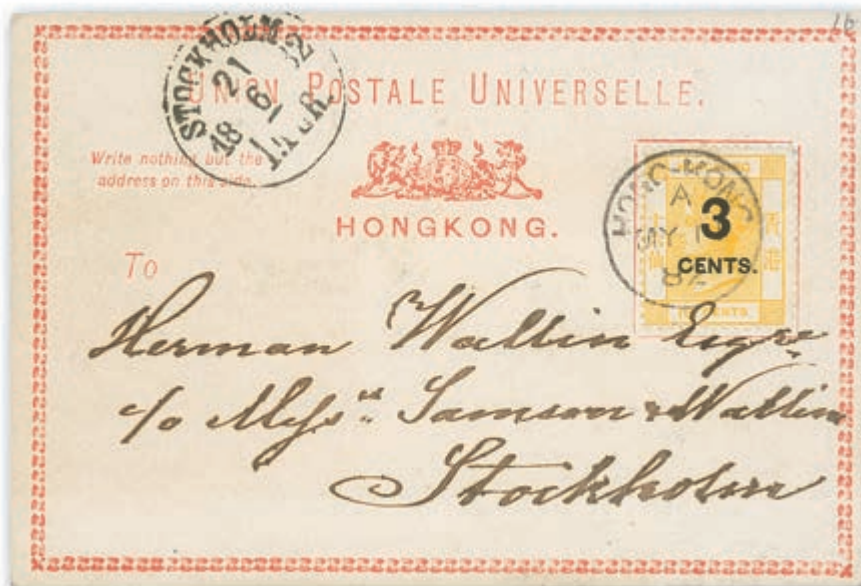 16
STOCKHOLM
21
18 6 82
1. TUR.
UNION POSTALE UNIVERSELLE.
Write nothing but the
address on this side.
HONGKONG.
HONG-KONG
A
MY 1
82
3
CENTS.
CENTS.
To
Herman Wallin Esqre
c/o Messrs Samson & Wallin
Stockholm